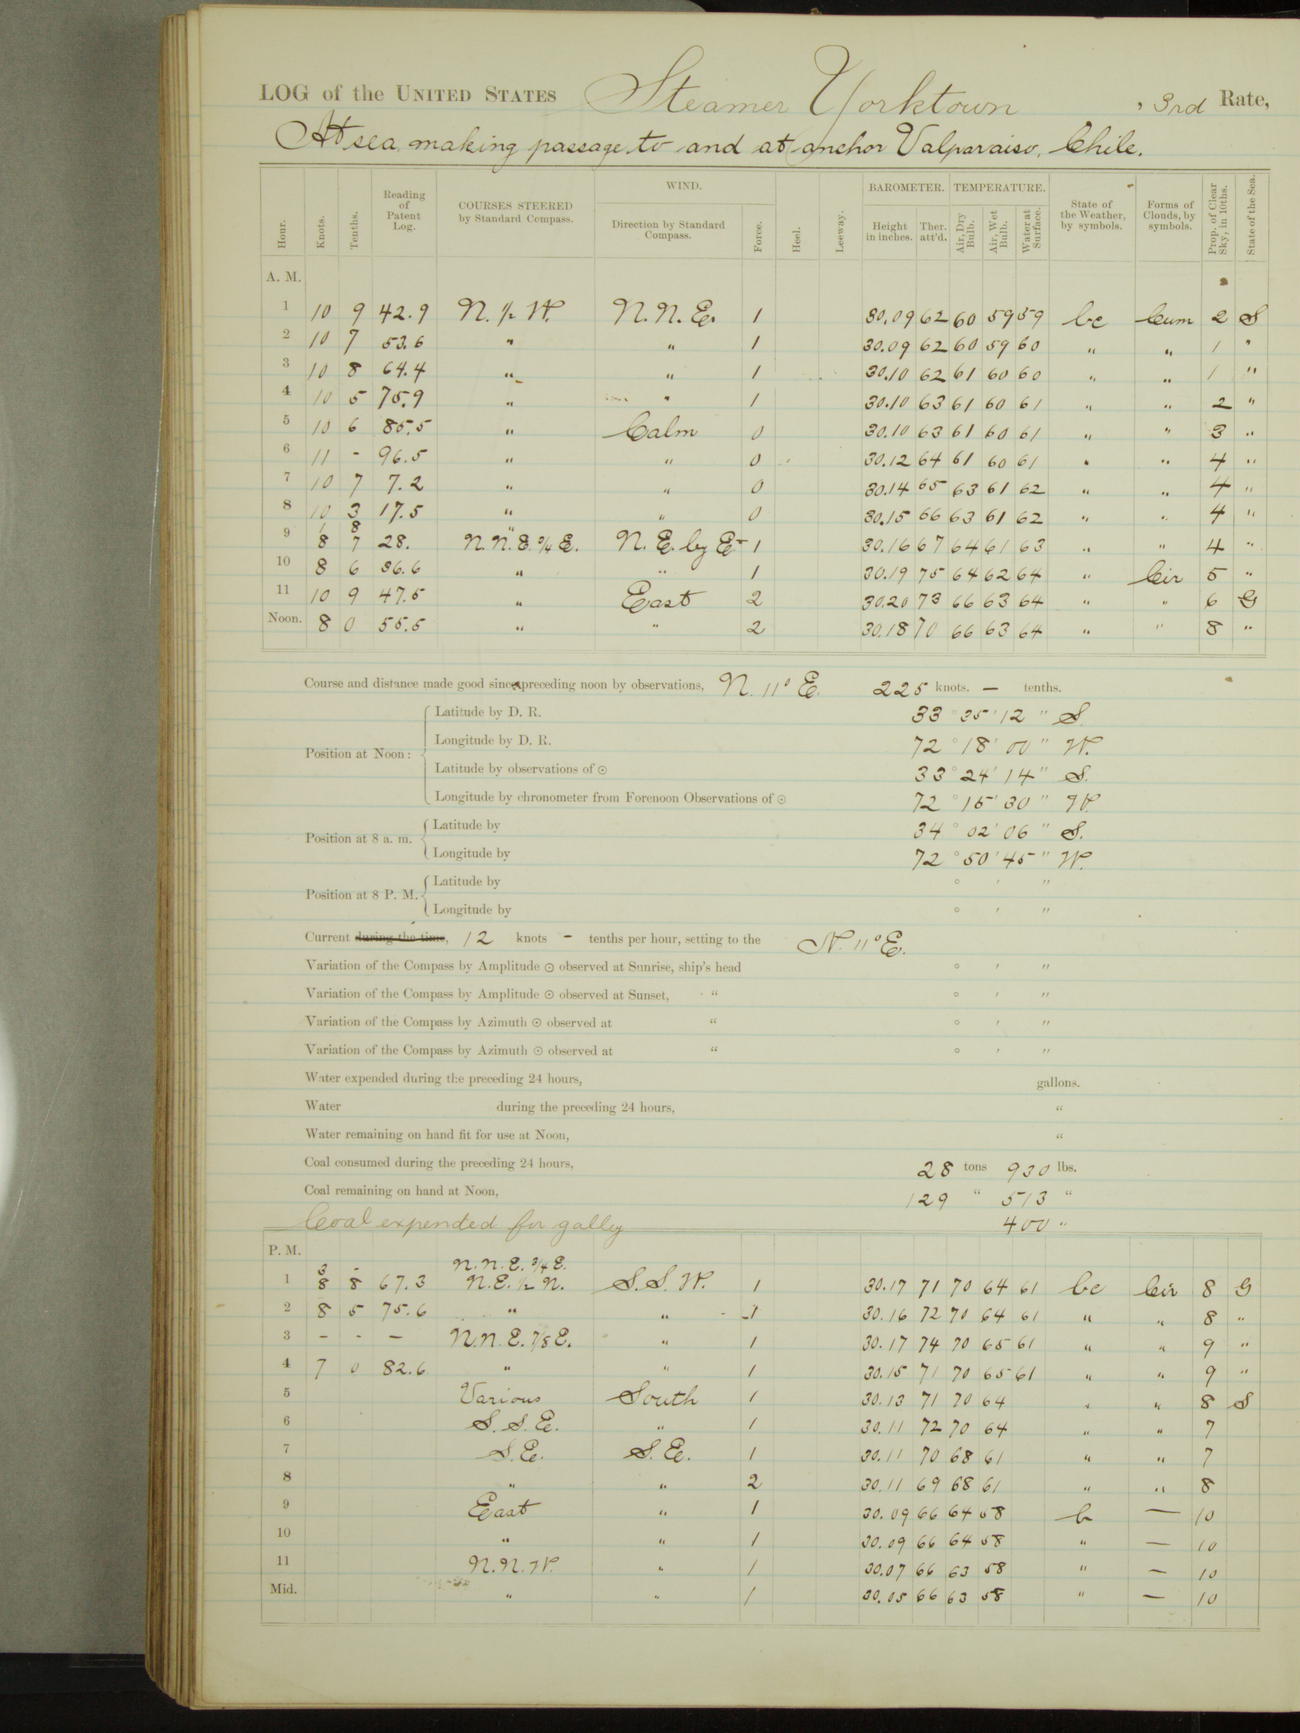 LOG of the UNITED STATES Steamer Yorktown, 3rd Rate,
At sea making passage to and at anchor Valparaiso, Chile.
WIND. BAROMETER. TEMPERATURE.
Hour. Knots. Tenths. Reading of Patent Log. COURSES STEERED by Standard Compass. Direction by Standard Compass. Force. Heel. Leeway. Height in inches. Ther. att'd. Air, Dry Bulb. Air, Wet Bulb. Water at Surface. State of the Weather, by symbols. Forms of Clouds, by symbols. Prop. of Clear Sky, in 10ths. State of the Sea.
A. M.
1 10 9 42.9 N. ½ W. N. N. E. 1 30.09 62 60 59 59 bc Cum 2 S
2 10 7 53.6 " " 1 30.09 62 60 59 60 " " 1 "
3 10 8 64.4 " " 1 30.10 62 61 60 60 " " 1 "
4 10 5 75.9 " " 1 30.10 63 61 60 61 " " 2 "
5 10 6 85.5 " Calm 0 30.10 63 61 60 61 " " 3 "
6 11 - 96.5 " " 0 30.12 64 61 60 61 " " 4 "
7 10 7 7.2 " " 0 30.14 65 63 61 62 " " 4 "
8 10 3 17.5 " " 0 30.15 66 63 61 62 " " 4 "
1 8 "
9 8 7 28. N. N. E. ¾ E. N. E. by E 1 30.16 67 64 61 63 " " 4 "
10 8 6 36.6 " " 1 30.19 75 64 62 64 " Cir 5 "
11 10 9 47.5 " East 2 30.20 73 66 63 64 " " 6 G
Noon. 8 0 55.5 " " 2 30.18 70 66 63 64 " " 8 "
Course and distance made good since preceding noon by observations, N. 11° E. 225 knots. — tenths.
Position at Noon: Latitude by D. R. 33 ° 35 ' 12 " S.
Longitude by D. R. 72 ° 18 ' 00 " W.
Latitude by observations of ☉ 33 ° 24 ' 14 " S.
Longitude by chronometer from Forenoon Observations of ☉ 72 ° 15 ' 30 " W.
Position at 8 a. m. Latitude by 34 ° 02 ' 06 " S.
Longitude by 72 ° 50 ' 45 " W.
Position at 8 P. M. Latitude by ° ' "
Longitude by ° ' "
Current during the time, 12 knots - tenths per hour, setting to the N. 11° E.
Variation of the Compass by Amplitude ☉ observed at Sunrise, ship's head ° ' "
Variation of the Compass by Amplitude ☉ observed at Sunset, " ° ' "
Variation of the Compass by Azimuth ☉ observed at " ° ' "
Variation of the Compass by Azimuth ☉ observed at " ° ' "
Water expended during the preceding 24 hours, gallons.
Water during the preceding 24 hours, "
Water remaining on hand fit for use at Noon, "
Coal consumed during the preceding 24 hours, 28 tons 930 lbs.
Coal remaining on hand at Noon, 129 " 513 "
Coal expended for gally 400 "
P. M.
3 - N. N. E. ¾ E.
1 8 8 67.3 N. E. ½ N. S. S. W. 1 30.17 71 70 64 61 bc Cir 8 G
2 8 5 75.6 " " 1 30.16 72 70 64 61 " " 8 "
3 - - - N. N. E. 7/8 E. " 1 30.17 74 70 65 61 " " 9 "
4 7 0 82.6 " " 1 30.15 71 70 65 61 " " 9 "
5 Various South 1 30.13 71 70 64 " " 8 S
6 S. S. E. " 1 30.11 72 70 64 " " 7
7 S. E. S. E. 1 30.11 70 68 61 " " 7
8 " " 2 30.11 69 68 61 " " 8
9 East " 1 30.09 66 64 58 b — 10
10 " " 1 30.09 66 64 58 " — 10
11 N. N. W. " 1 30.07 66 63 58 " — 10
Mid. " " 1 30.05 66 63 58 " — 10